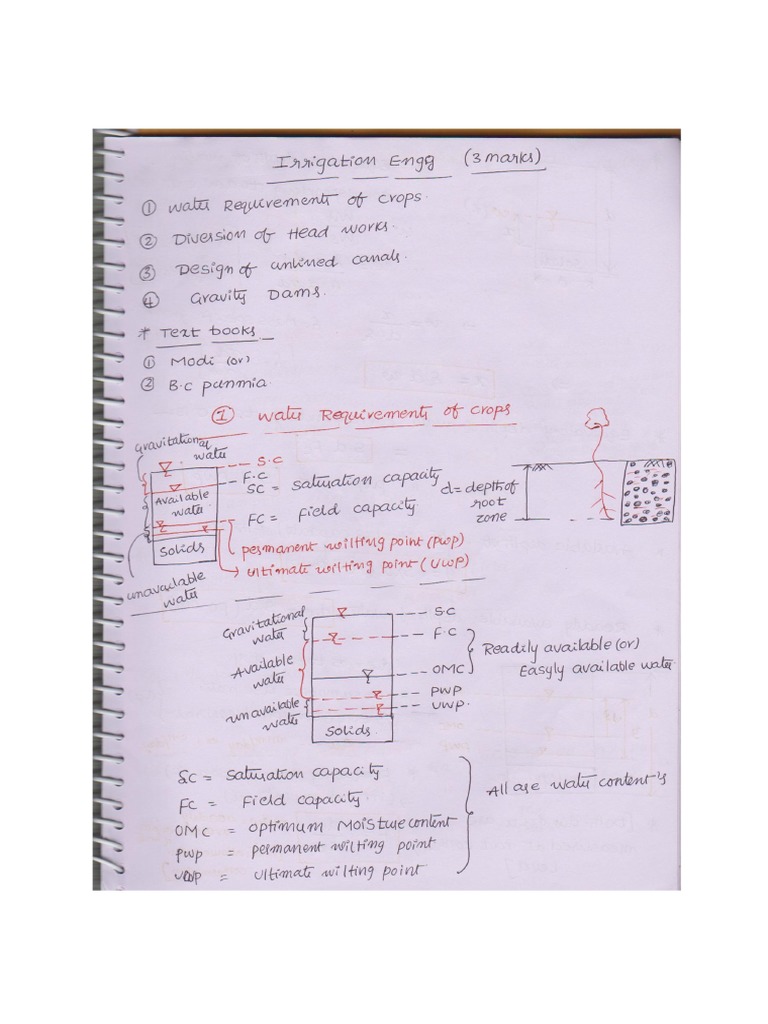 Irrigation Engg (3 marks)
① Water Requirements of Crops.
② Diversion of Head works.
③ Design of unlined canals.
④ Gravity Dams.
* Text books
① Modi (or)
② B.C punmia
① Water Requirements of Crops
Gravitational
water
S.C
F.C
SC = saturation capacity
Available
water
FC = Field capacity
d = depth of
root
zone
Solids
permanent wilting point (pwp)
ultimate wilting point (UWP)
unavailable
water
Gravitational
water
S.C
F.C
Readily available (or)
Easyly available water
Available
water
OMC
PWP
UWP.
unavailable
water
Solids.
SC = saturation capacity
FC = Field capacity.
OMC = optimum Moisture content
pwp = permanent wilting point
UWP = ultimate wilting point
All are water content's